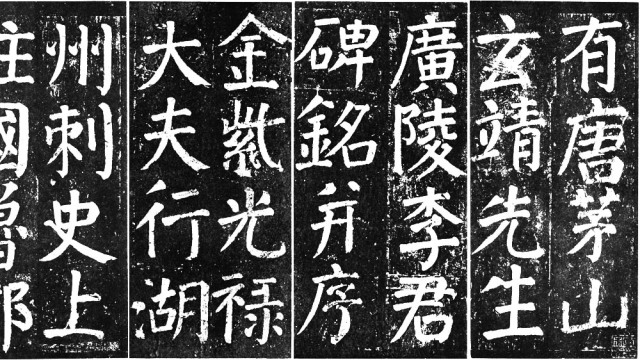 有唐茅山
玄靖先生
廣陵李君
碑銘并序
金紫光祿
大夫行湖
州刺史上
柱國魯郡